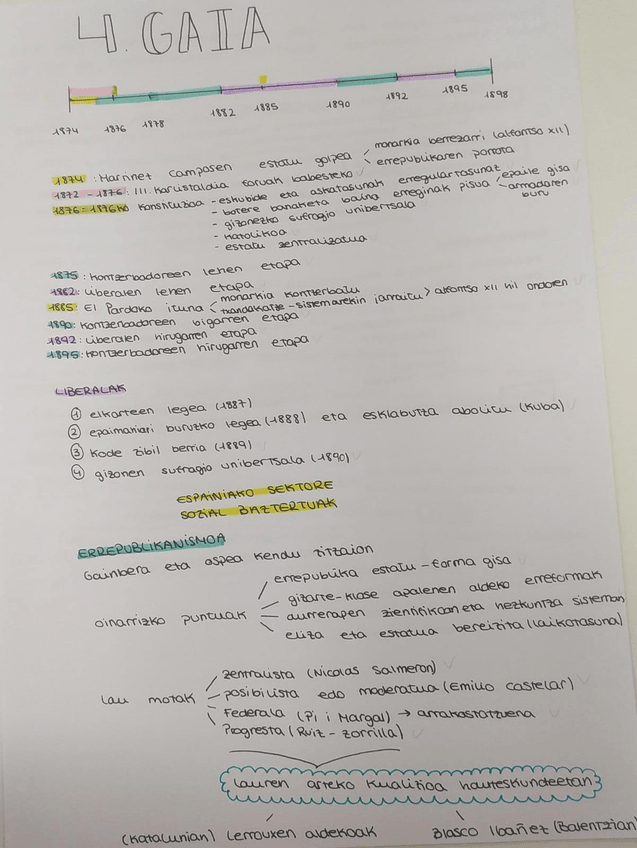 4. GAIA
1874 1876 1878 1882 1885 1890 1892 1895 1898
1874: Martinez Camposen estatu golpea monarkia berrezarri (alfontso XII)
errepublikaren porrota
1872-1876: III. Karlistaldia foruak babesteko
1876: 1876ko Konstituzioa - eskubide eta askatasunak erregulartasunez
- botere banaketa baina erreginak pisua epaile gisa
armadaren buru
- gizonezko sufragio unibertsala
- katolikoa
- estatu zentralizatua
1875: Kontzerbadoreen lehen etapa
1882: Liberalen lehen etapa
1885: El Pardoko ituna monarkia kontzerbatu
txandakatze-sistemarekin jarraitu > alfontso XII hil ondoren
1890: Kontzerbadoreen bigarren etapa
1892: Liberalen hirugarren etapa
1895: Kontzerbadoreen hirugarren etapa
LIBERALAK
1 elkarteen legea (1887)
2 epaimahiari buruzko legea (1888) eta esklabutza abolitu (Kuba)
3 Kode zibil berria (1889)
4 gizonen sufragio unibertsala (1890)
ESPAINIAKO SEKTORE
SOZIAL BAZTERTUAK
ERREPUBLIKANISMOA
Gainbera eta aspea kendu zitzaion
errepublika estatu-forma gisa
gizarte-klase apalenen aldeko erreformak
oinarrizko puntuak
aurrerapen zientifikoan eta hezkuntza sisteman
eliza eta estatua bereizita (laikotasuna)
zentralista (Nicolas Salmeron)
lau motak
posibilista edo moderatua (Emilio Castelar)
Federala (Pi i Margal) → arrakastatzuena
Progresta (Ruiz-Zorrilla)
Lauren arteko Kualizioa hauteskundeetan
(Katalunian) Lerrouxen aldekoak Blasco Ibañez (Balentzian)